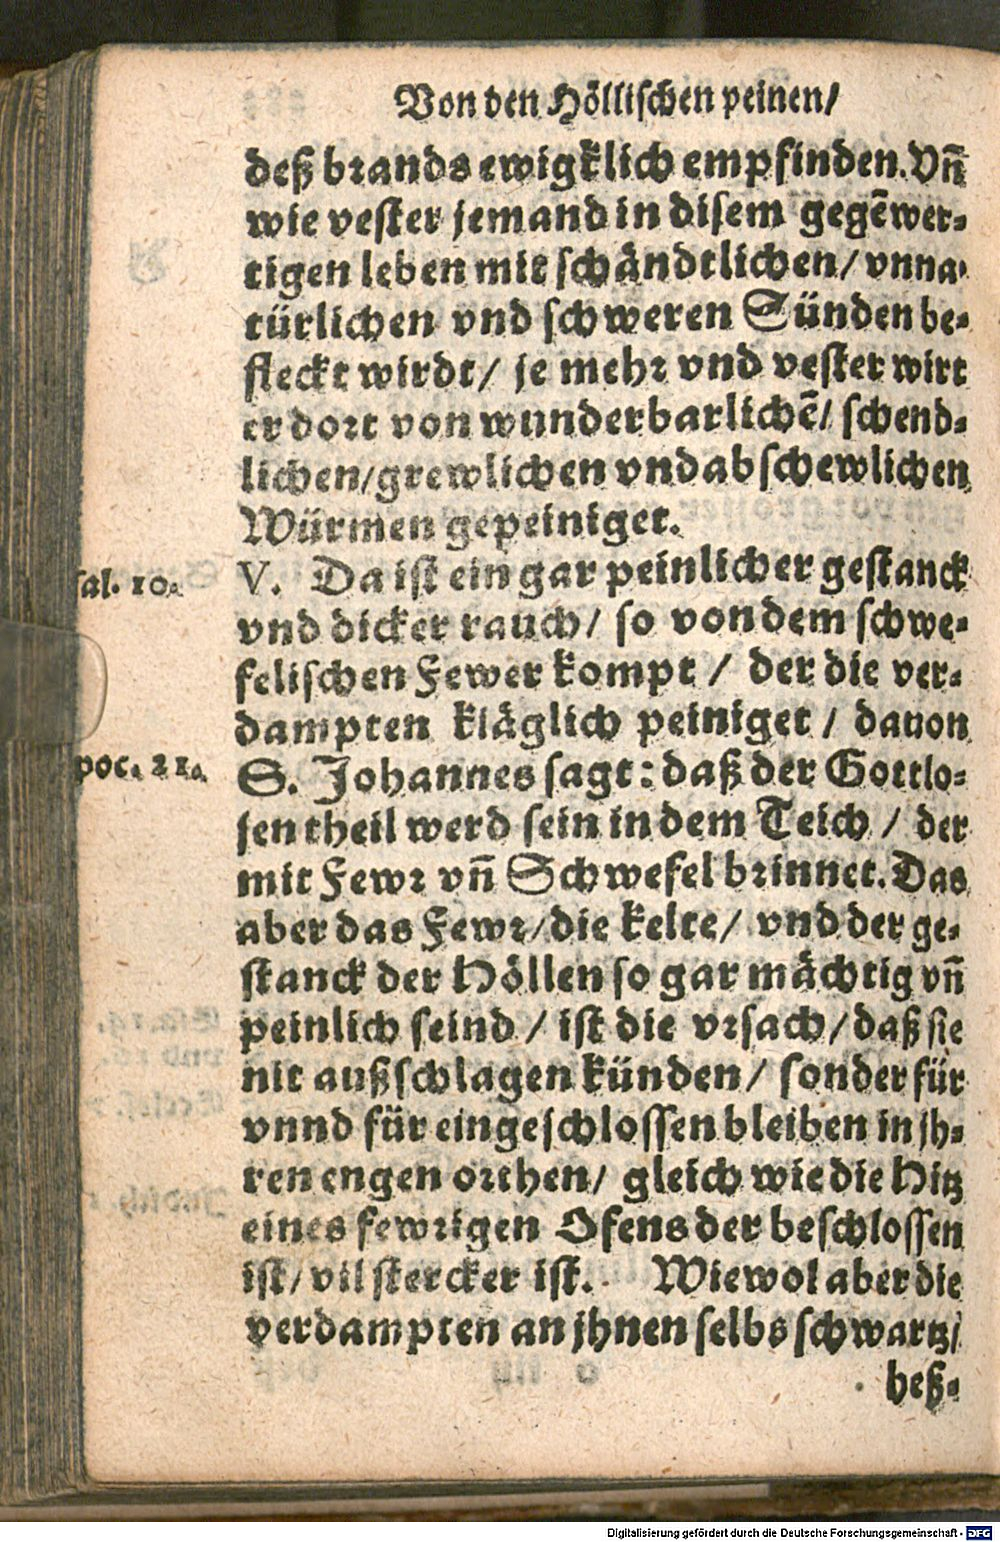 Von den Höllischen peinen/
deß brands ewigklich empfinden. Vñ
wie vester jemand in disem gegẽwer-
tigen leben mit schändtlichen/ vnna-
türlichen vnd schweren Sünden be-
fleckt wirdt/ je mehr vnd vester wirt
er dort von wunderbarlichẽ/ schend-
lichen/ grewlichen vnd abschewlichen
Würmen gepeiniget.
sal. 10.
V. Da ist ein gar peinlicher gestanck
vnd dicker rauch/ so von dem schwe-
felischen Fewer kompt / der die ver-
dampten kläglich peiniget / dauon
poc. 21.
S. Johannes sagt: daß der Gottlo-
sen theil werd sein in dem Teich / der
mit Fewr vñ Schwefel brinnet. Das
aber das Fewr/ die kelte/ vnd der ge-
stanck der Höllen so gar mächtig vñ
peinlich seind / ist die vrsach/ daß sie
nit außschlagen künden/ sonder für
vnnd für eingeschlossen bleiben in jh-
ren engen orthen/ gleich wie die Hitz
eines fewrigen Ofens der beschlossen
ist/ vil stercker ist. Wiewol aber die
verdampten an jhnen selbs schwartz/
heß-
Digitalisierung gefördert durch die Deutsche Forschungsgemeinschaft - DFG